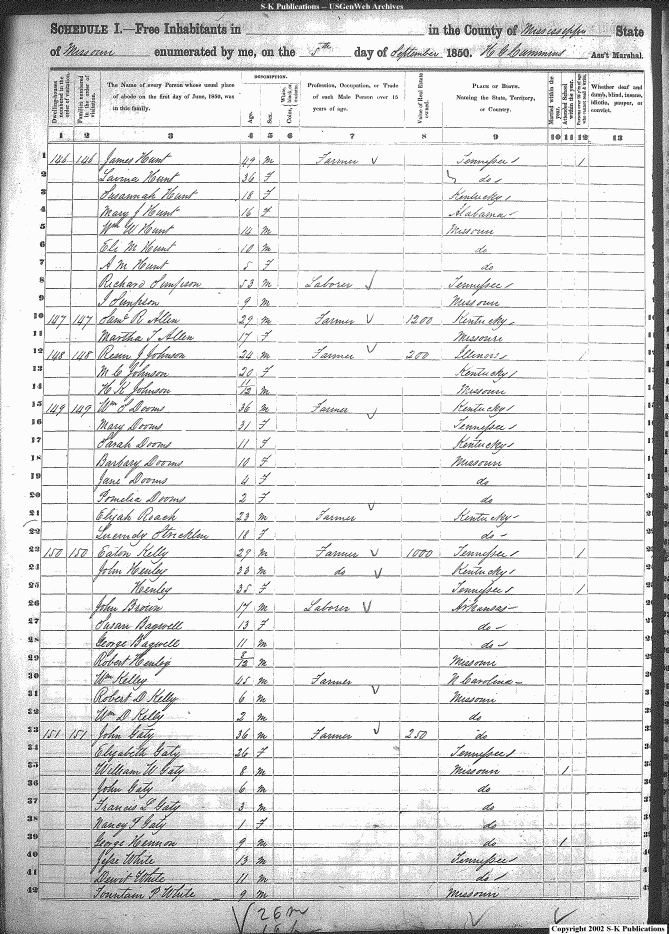 S-K Publications -- USGenWeb Archives
SCHEDULE I.—Free Inhabitants in in the County of Mississippi State
of Missouri enumerated by me, on the 5th day of September 1850. H C Cummins Ass't Marshal.
Dwelling-houses numbered in the order of visitation.
Families numbered in the order of visitation.
The Name of every Person whose usual place of abode on the first day of June, 1850, was in this family.
DESCRIPTION.
Age.
Sex.
White, black, or mulatto.
Color,
Profession, Occupation, or Trade of each Male Person over 15 years of age.
Value of Real Estate owned.
PLACE OF BIRTH.
Naming the State, Territory, or Country.
Married within the year.
Attended School within the year.
Whether deaf and dumb, blind, insane, idiotic, pauper, or convict.
1 2 3 4 5 6 7 8 9 10 11 12 13
1 146 146 James Hunt 49 M Farmer Tennessee 1
2 Lavina Hunt 36 F do
3 Susannah Hunt 18 F Kentucky
4 Mary J Hunt 16 F Alabama
5 Wm W Hunt 14 M Missouri
6 Eli M Hunt 10 M do
7 A M Hunt 5 F do
8 Richard Simpson 53 M Laborer Tennessee
9 J Simpson 9 M Missouri
10 147 147 Saml R Allen 29 M Farmer 1200 Kentucky
11 Martha T Allen 17 F Missouri
12 148 148 Resin J Johnson 24 M Farmer 200 Illinois
13 M C Johnson 20 F Kentucky
14 H K Johnson 11/12 M Missouri
15 149 149 Wm S Dooms 36 M Farmer Kentucky
16 Mary Dooms 31 F Tennessee
17 Sarah Dooms 11 F Kentucky
18 Barbary Dooms 10 F Missouri
19 Jane Dooms 4 F do
20 Pomelia Dooms 2 F do
21 Elijah Roach 23 M Farmer Kentucky
22 18 F do
23 150 150 Eaton Kelly 29 M Farmer 1000 Tennessee 1
24 John Henley 33 M do Kentucky
25 Henley 35 F Tennessee 1
26 John Brown 17 M Laborer Arkansas
27 Susan Bagwell 13 F do
28 George Bagwell 11 M do
29 Robert Henley M Missouri
30 Wm Kelley 45 M Farmer N Carolina
31 Robert D Kelly 6 M Missouri
32 Wm D Kelly 2 M do
33 151 151 John Gaty 36 M Farmer 250 do
34 Elizabeth Gaty 26 F Tennessee
35 William W Gaty 8 M Missouri 1
36 John Gaty 6 M do
37 Francis L Gaty 3 M do
38 Nancy P Gaty 1 F do
39 George Hennon 9 M do 1
40 Jesse White 13 M Tennessee
41 Dewit White 11 M do
42 Fountain P White 9 M Missouri
26 M
Copyright 2002 S-K Publications